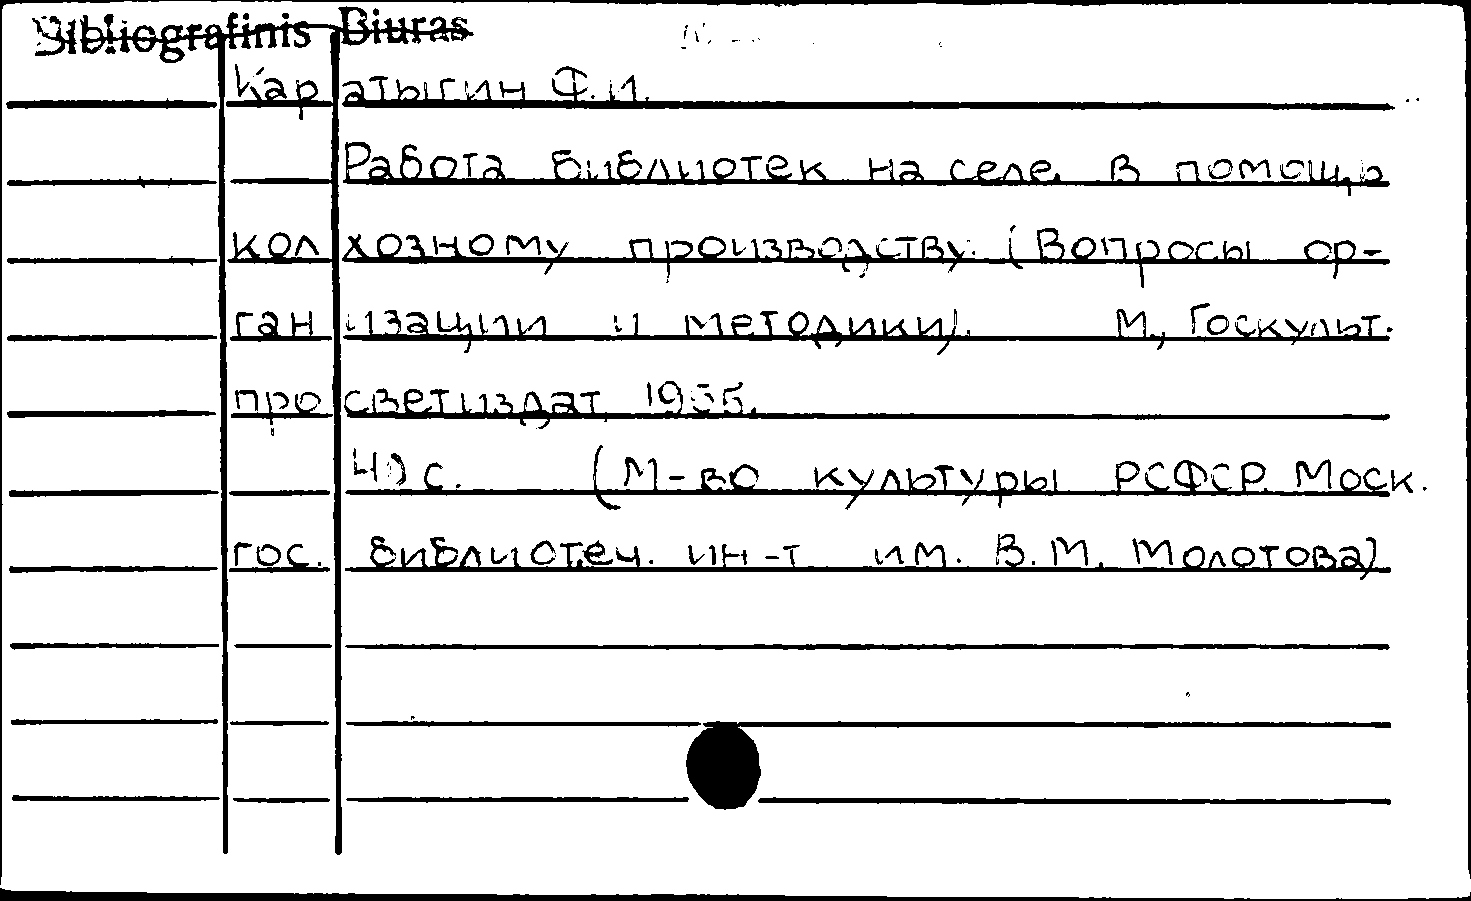 Bibliografinis Biuras
Каратыгин Ф.И.
Работа библиотек на селе в помощь
колхозному производству. (Вопросы ор-
ганизации и методики). М., Госкульт.
просветиздат, 1955.
40 с. (М-во культуры РСФСР. Моск.
гос. библиотеч. ин-т им. В.М. Молотова)